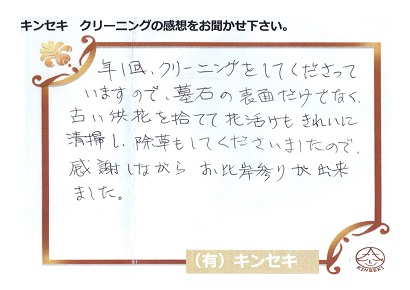 キンセキ　クリーニングの感想をお聞かせ下さい。
年1回、クリーニングをしてくださって
いますので、墓石の表面だけでなく
古い供花を捨てて花活けもきれいに
清掃し、除草もしてくださいましたので、
感謝しながら お彼岸参りが出来
ました。
（有）キンセキ
KINSEKI